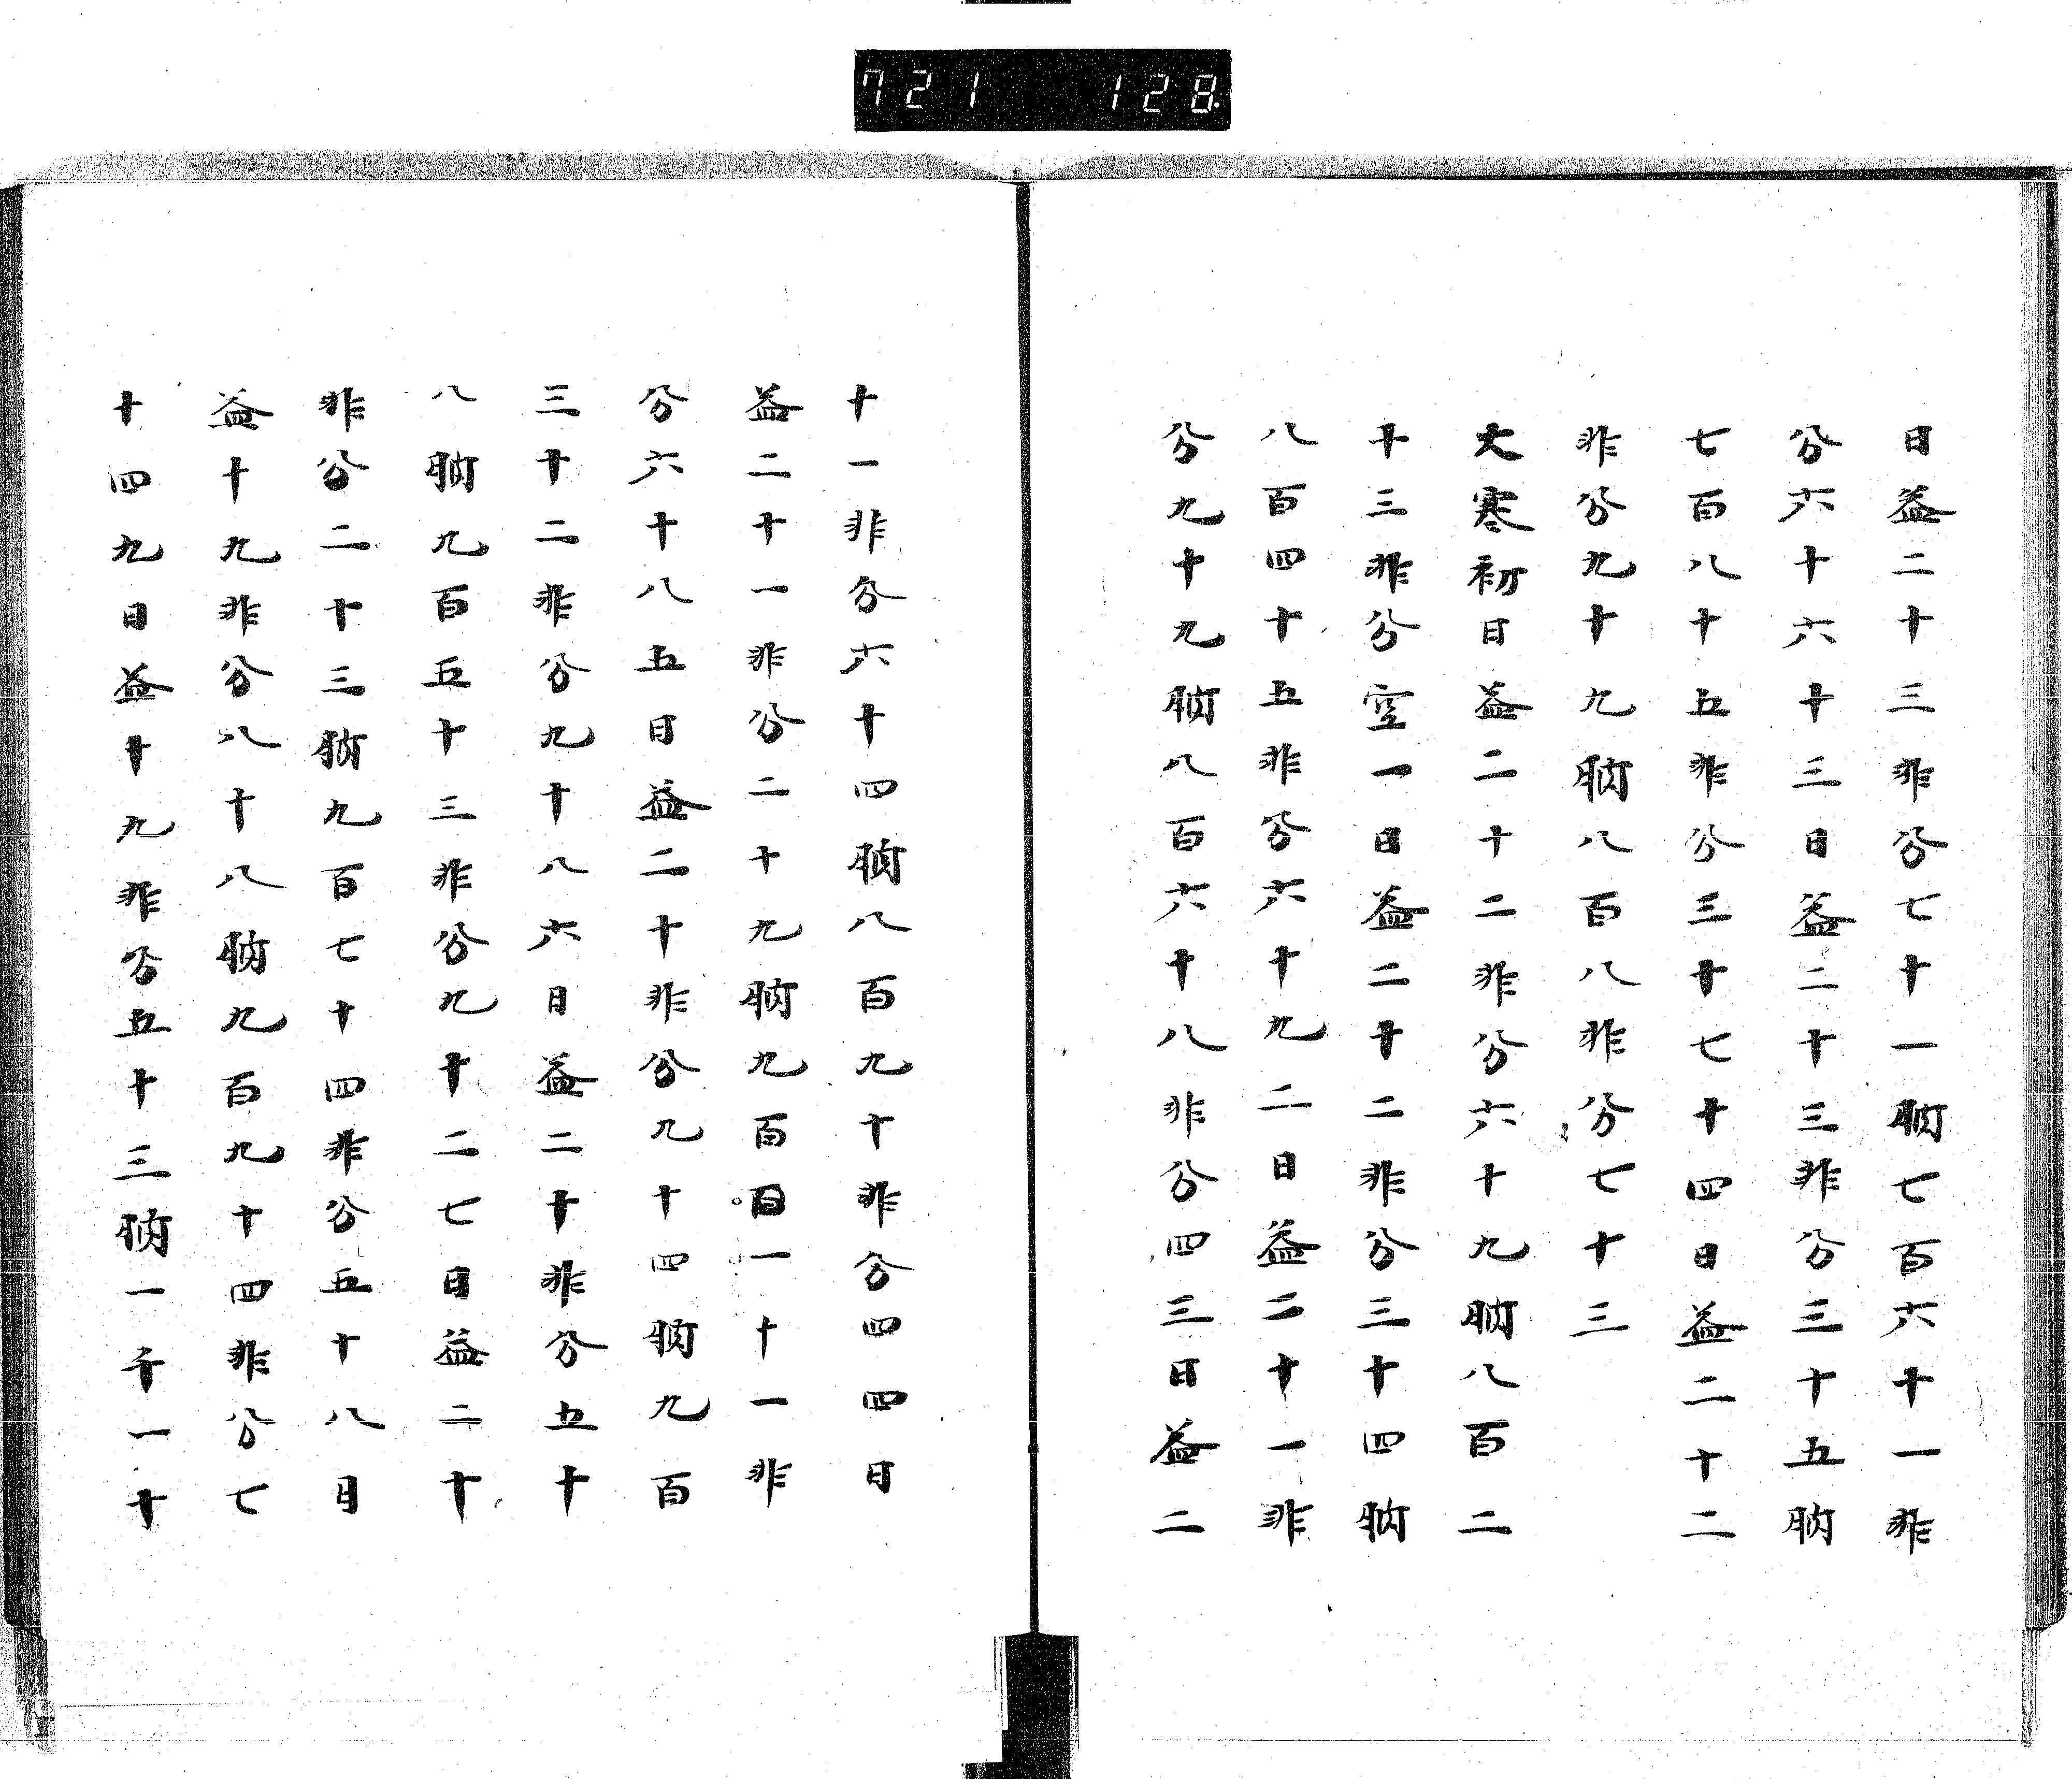 721 128
日益二十三非分七十一朒七百六十一非
分六十六十三日益二十三非分三十五朒
七百八十五非分三十七十四日益二十二
非分九十九朒八百八非分七十三
大寒初日益二十二非分六十九朒八百二
十三非分空一日益二十二非分三十四朒
八百四十五非分六十九二日益二十一非
分九十九朒八百六十八非分四三日益二
十一非分六十四朒八百九十非分四四日
益二十一非分二十九朒九百百一十一非
分六十八五日益二十非分九十四朒九百
三十二非分九十八六日益二十非分五十
八朒九百五十三非分九十二七日益二十
非分二十三朒九百七十四非分五十八日
益十九非分八十八朒九百九十四非分七
十四九日益十九非分五十三朒一千一十